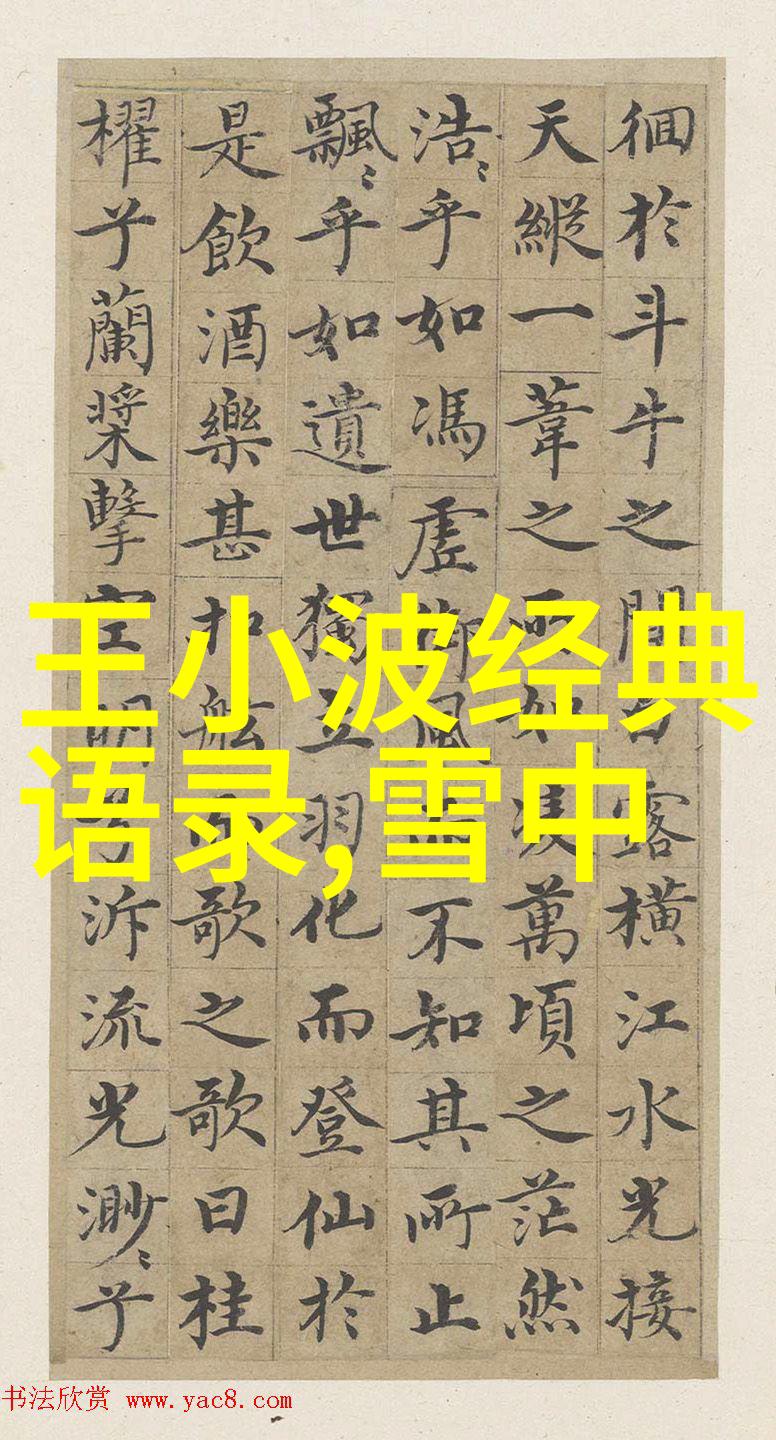 徊於斗牛之間白露橫江水光接
天縱一葦之所如凌萬頃之茫然
浩〻乎如馮虛御風而不知其所止
飄〻乎如遺世獨立羽化而登仙於
是飲酒樂甚扣舷而歌之歌曰桂
櫂兮蘭槳擊空明兮泝流光渺〻兮
王小波经典
语录,雪中
书法欣赏 www.yac8.com